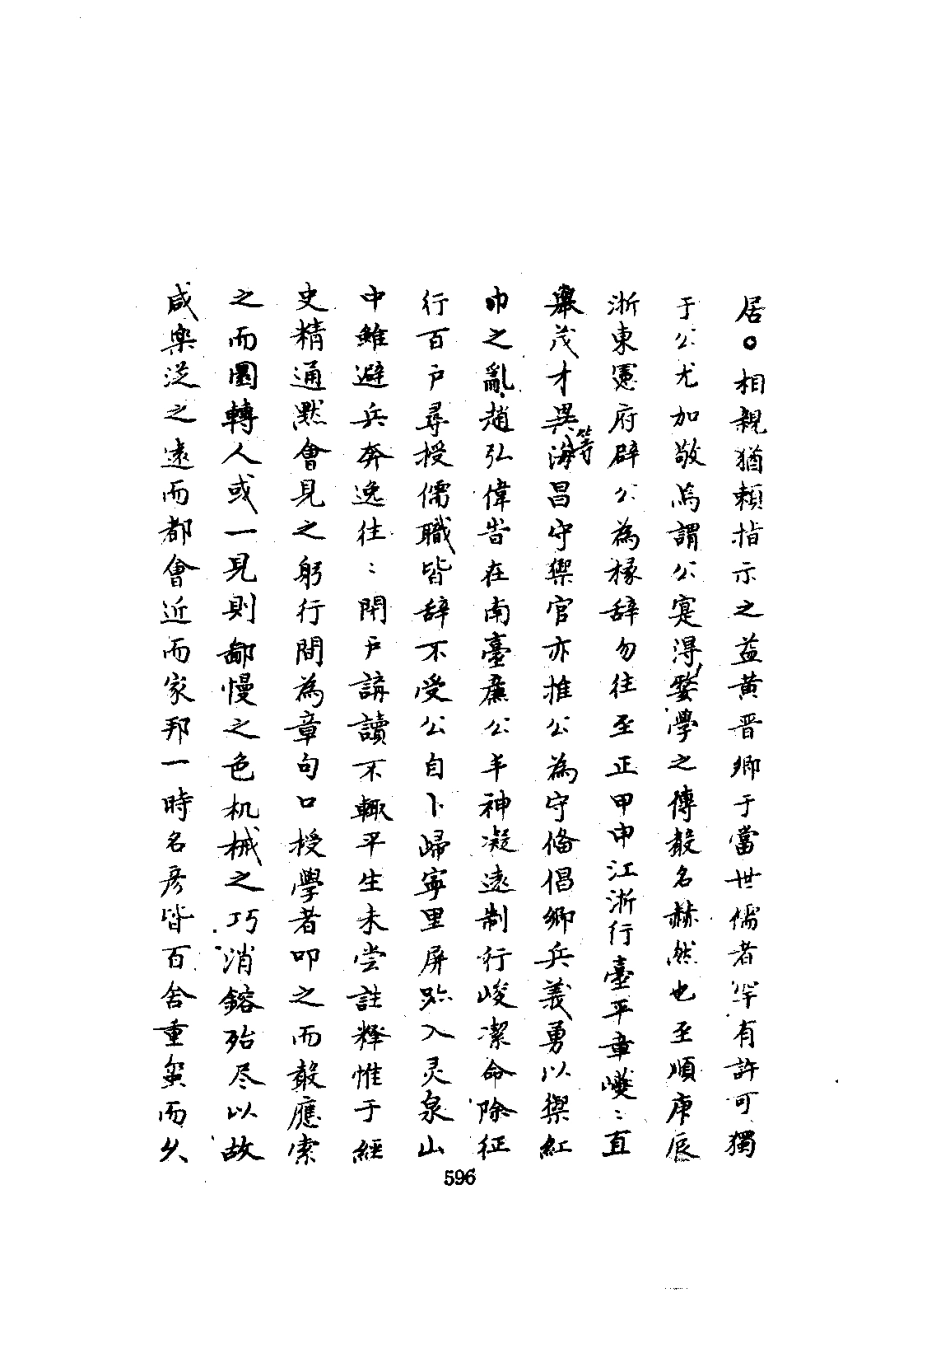 居○相親猶賴指示之益黃晋卿于當世儒者罕有許可獨
于公尤加敬焉謂公寔淂婺學之傳聲名赫然也至順庚辰
浙東憲府辟公為椽辞勿往至正甲申江浙行臺平章巙:直
舉茂才異等海昌守禦官亦推公為守俻倡鄉兵義勇以禦紅
巾之亂趙弘偉皆在南臺薦公丰神凝遠制行峻潔命除征
行百户尋授儒職皆辞不受公自卜歸寧里屏跡入灵泉山
中雖避兵奔逸往:閉户講讀不輟平生未尝註释惟于經
史精通默會見之躬行間為章句口授學者叩之而聲應索
之而圜轉人或一見則鄙慢之色机械之巧消鎔殆尽以故
咸樂從之遠而都會近而家邦一時名彦皆百舍重茧而久
596